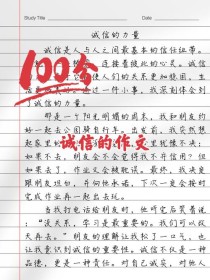 Study Title
Date
诚信的力量
诚信是人与人之间最基本的信任纽带。
连接着彼此的心灵。诚信
使人们的关系更加稳固，生
过一件小事，我深刻体会到
诚信的力量。
100分
那是一个阳光明媚的周末，我和朋友约
好一起去公园骑自行车。出发前，我突然想
起家里
诚信的作文
如果不去，朋友会不会觉得我不守信用？但
如果去了，作业又会被耽误。最终，我决定
跟朋友坦白，并向他承诺，下次一定会按时
完成作业后再一起去。
当我打电话给朋友时，他听完后笑着说
：“没关系，学习是最重要的。我们可以改
天再去。”朋友的理解让我松了一口气，也
让我意识到诚信的重要性。诚信不仅是一种
品德，更是一种责任。对自己诚实，对他人